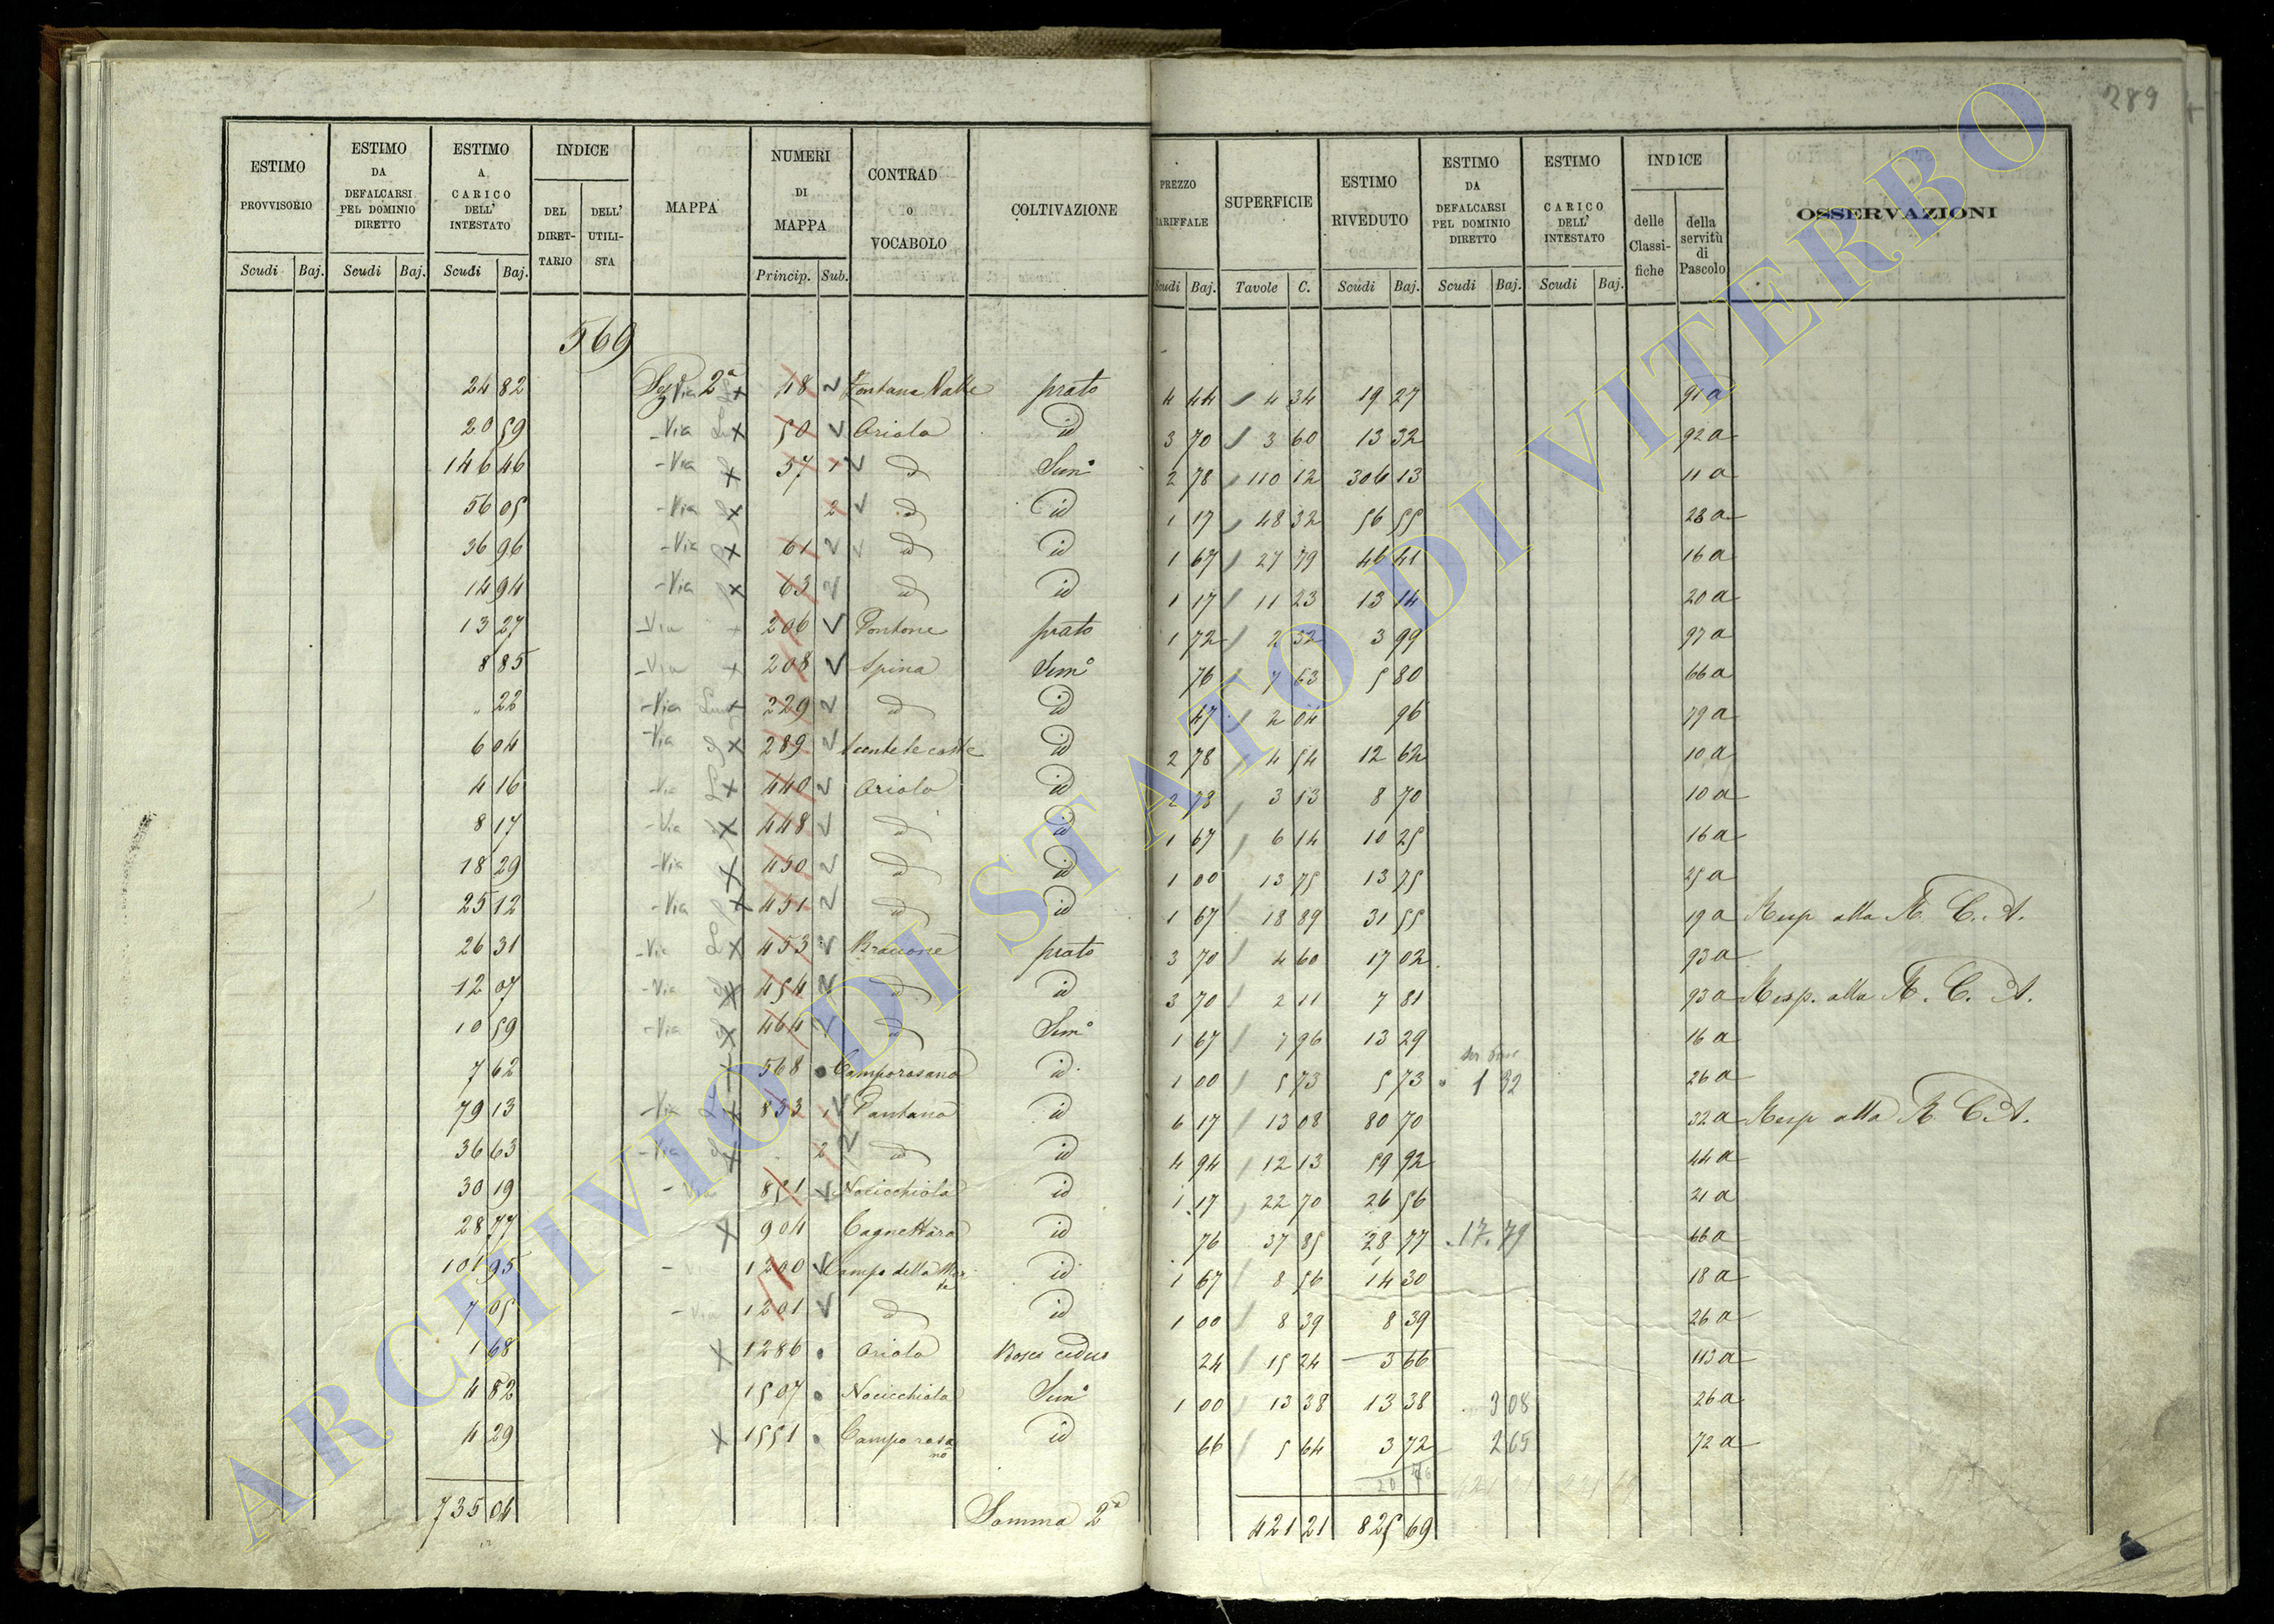 289
ESTIMO PROVVISORIO Scudi Baj.
ESTIMO DA DEFALCARSI PEL DOMINIO DIRETTO Scudi Baj.
ESTIMO A CARICO DELL' INTESTATO Scudi Baj.
INDICE DEL DIRET-TARIO DELL' UTILI-STA
MAPPA
NUMERI DI MAPPA Princip. Sub.
CONTRAD o VOCABOLO
COLTIVAZIONE
PREZZO TARIFFALE Scudi Baj.
SUPERFICIE Tavole C.
ESTIMO RIVEDUTO Scudi Baj.
ESTIMO DA DEFALCARSI PEL DOMINIO DIRETTO Scudi Baj.
ESTIMO A CARICO DELL' INTESTATO Scudi Baj.
INDICE delle Classi-fiche della servitù di Pascolo
OSSERVAZIONI
569
24 82 2a 48 Fontana prato 4 44 4 34 19 27 91 a
20 59 Via 50 Ariola id 3 70 3 60 13 32 92 a
146 46 Via 57 1 d Sem° 2 78 110 12 306 13 11 a
56 05 Via 2 d id 1 17 48 32 56 55 28 a
36 96 Via 61 d id 1 67 27 79 46 41 16 a
14 94 Via 63 d id 1 17 11 23 13 14 20 a
13 27 Via 206 Pontone prato 1 72 2 32 3 99 97 a
8 85 Via 208 Spina Sem° 76 7 63 5 80 66 a
22 Via 229 d id 47 2 04 96 79 a
6 04 Via 289 id 2 78 4 54 12 62 10 a
4 16 Via 440 Ariola id 2 78 3 13 8 70 10 a
8 17 Via 448 d id 1 67 6 14 10 25 16 a
18 29 Via 450 d id 1 00 13 75 13 75 25 a
25 12 Via 451 d id 1 67 18 89 31 55 19 a Resp alla R. C. A.
26 31 Via 453 prato 3 70 4 60 17 02 93 a
12 07 Via 454 d id 3 70 2 11 7 81 93 a Resp. alla R. C. A.
10 59 Via 464 d Sem° 1 67 7 96 13 29 16 a
7 62 568 Camporosano id 1 00 5 73 5 73 1 32 26 a
79 13 Via 833 1 Pantano id 6 17 13 08 80 70 32 a Resp alla R. C. A.
36 63 Via 2 d id 4 94 12 13 59 92 44 a
30 19 Via 851 Nocicchiola id 1 17 22 70 26 56 21 a
28 77 904 Cagnettara id 76 37 85 28 77 17.79 66 a
101 95 1200 Campo della id 1 67 8 56 14 30 18 a
7 05 Via 1201 d id 1 00 8 39 8 39 26 a
1 68 1286 Ariola Bosco ceduo 24 15 24 3 66 113 a
4 82 1507 Nocicchiola Sem° 1 00 13 38 13 38 3 08 26 a
4 29 1551 Camporosano id 66 5 64 3 72 2 65 72 a
735 04 Somma 2a 421 21 825 69
ARCHIVIO DI STATO DI VITERBO